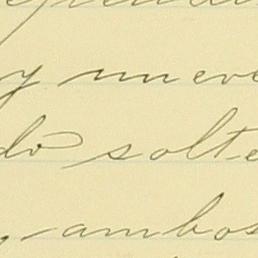 y nueve
dó solte
ambos